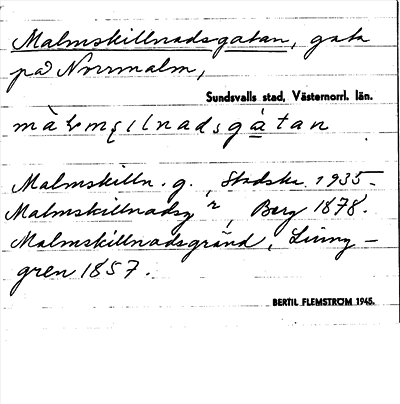 Malmskillnadsgatan, gata
på Norrmalm,
Sundsvalls stad, Västernorrl. län.
Malmskilln. g., Stadska. 1935.
Malmskillnadsg, Berg 1878.
Malmskillnadsgränd, Ljung-
gren 1857.
BERTIL FLEMSTRÖM 1945.